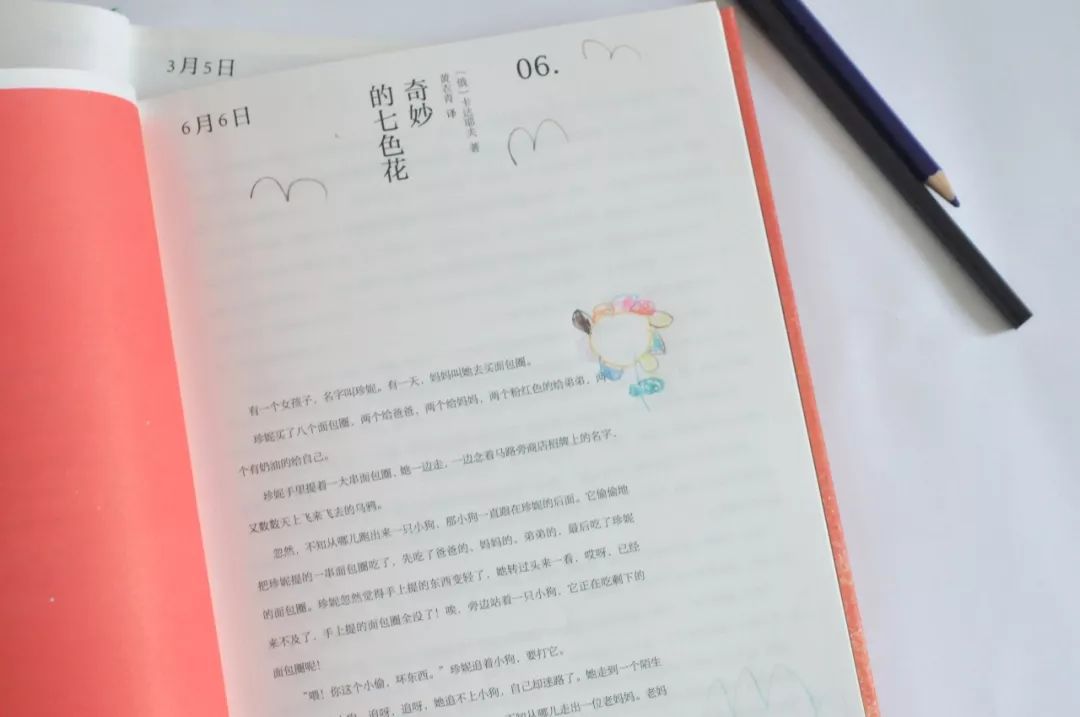 3月5日
6月6日
06.
奇妙
的七色花
(俄)卡达耶夫 著
黄衣青 译
有一个女孩子，名字叫珍妮。有一天，妈妈叫她去买面包圈。
珍妮买了八个面包圈，两个给爸爸，两个给妈妈，两个粉红色的给弟弟，两
个有奶油的给自己。
珍妮手里提着一大串面包圈，她一边走，一边念着马路旁商店招牌上的名字，
又数数天上飞来飞去的乌鸦。
忽然，不知从哪儿跑出来一只小狗，那小狗一直跟在珍妮的后面。它偷偷地
把珍妮提的一串面包圈吃了，先吃了爸爸的、妈妈的、弟弟的，最后吃了珍妮
的面包圈。珍妮忽然觉得手上提的东西变轻了，她转过头来一看，哎呀，已经
来不及了，手上提的面包圈全没了！唉，旁边站着一只小狗，它正在吃剩下的
面包圈呢！
“喂！你这个小偷，坏东西。”珍妮追着小狗，要打它。
追呀，追呀，她追不上小狗，自己却迷路了。她走到一个陌生
不知从哪儿走出一位老妈妈。老妈